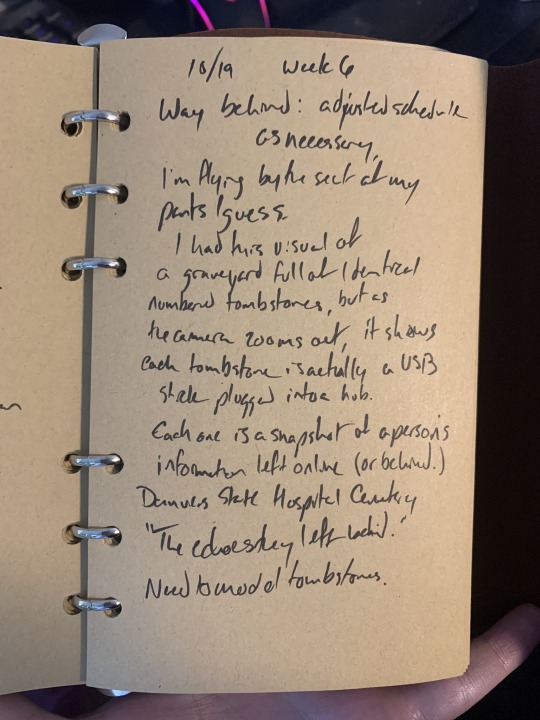 10/19 Week 6
Way behind: adjusted schedule
as necessary,
I'm flying by the seat of my
pants I guess.
I had this visual of
a graveyard full of identical
numbered tombstones, but as
the camera zooms out, it shows
each tombstone is actually a USB
stick plugged into a hub.
Each one is a snapshot of a person's
information left online (or behind.)
Danvers State Hospital Cemetery
"The echoes they left behind."
Need to model tombstones.